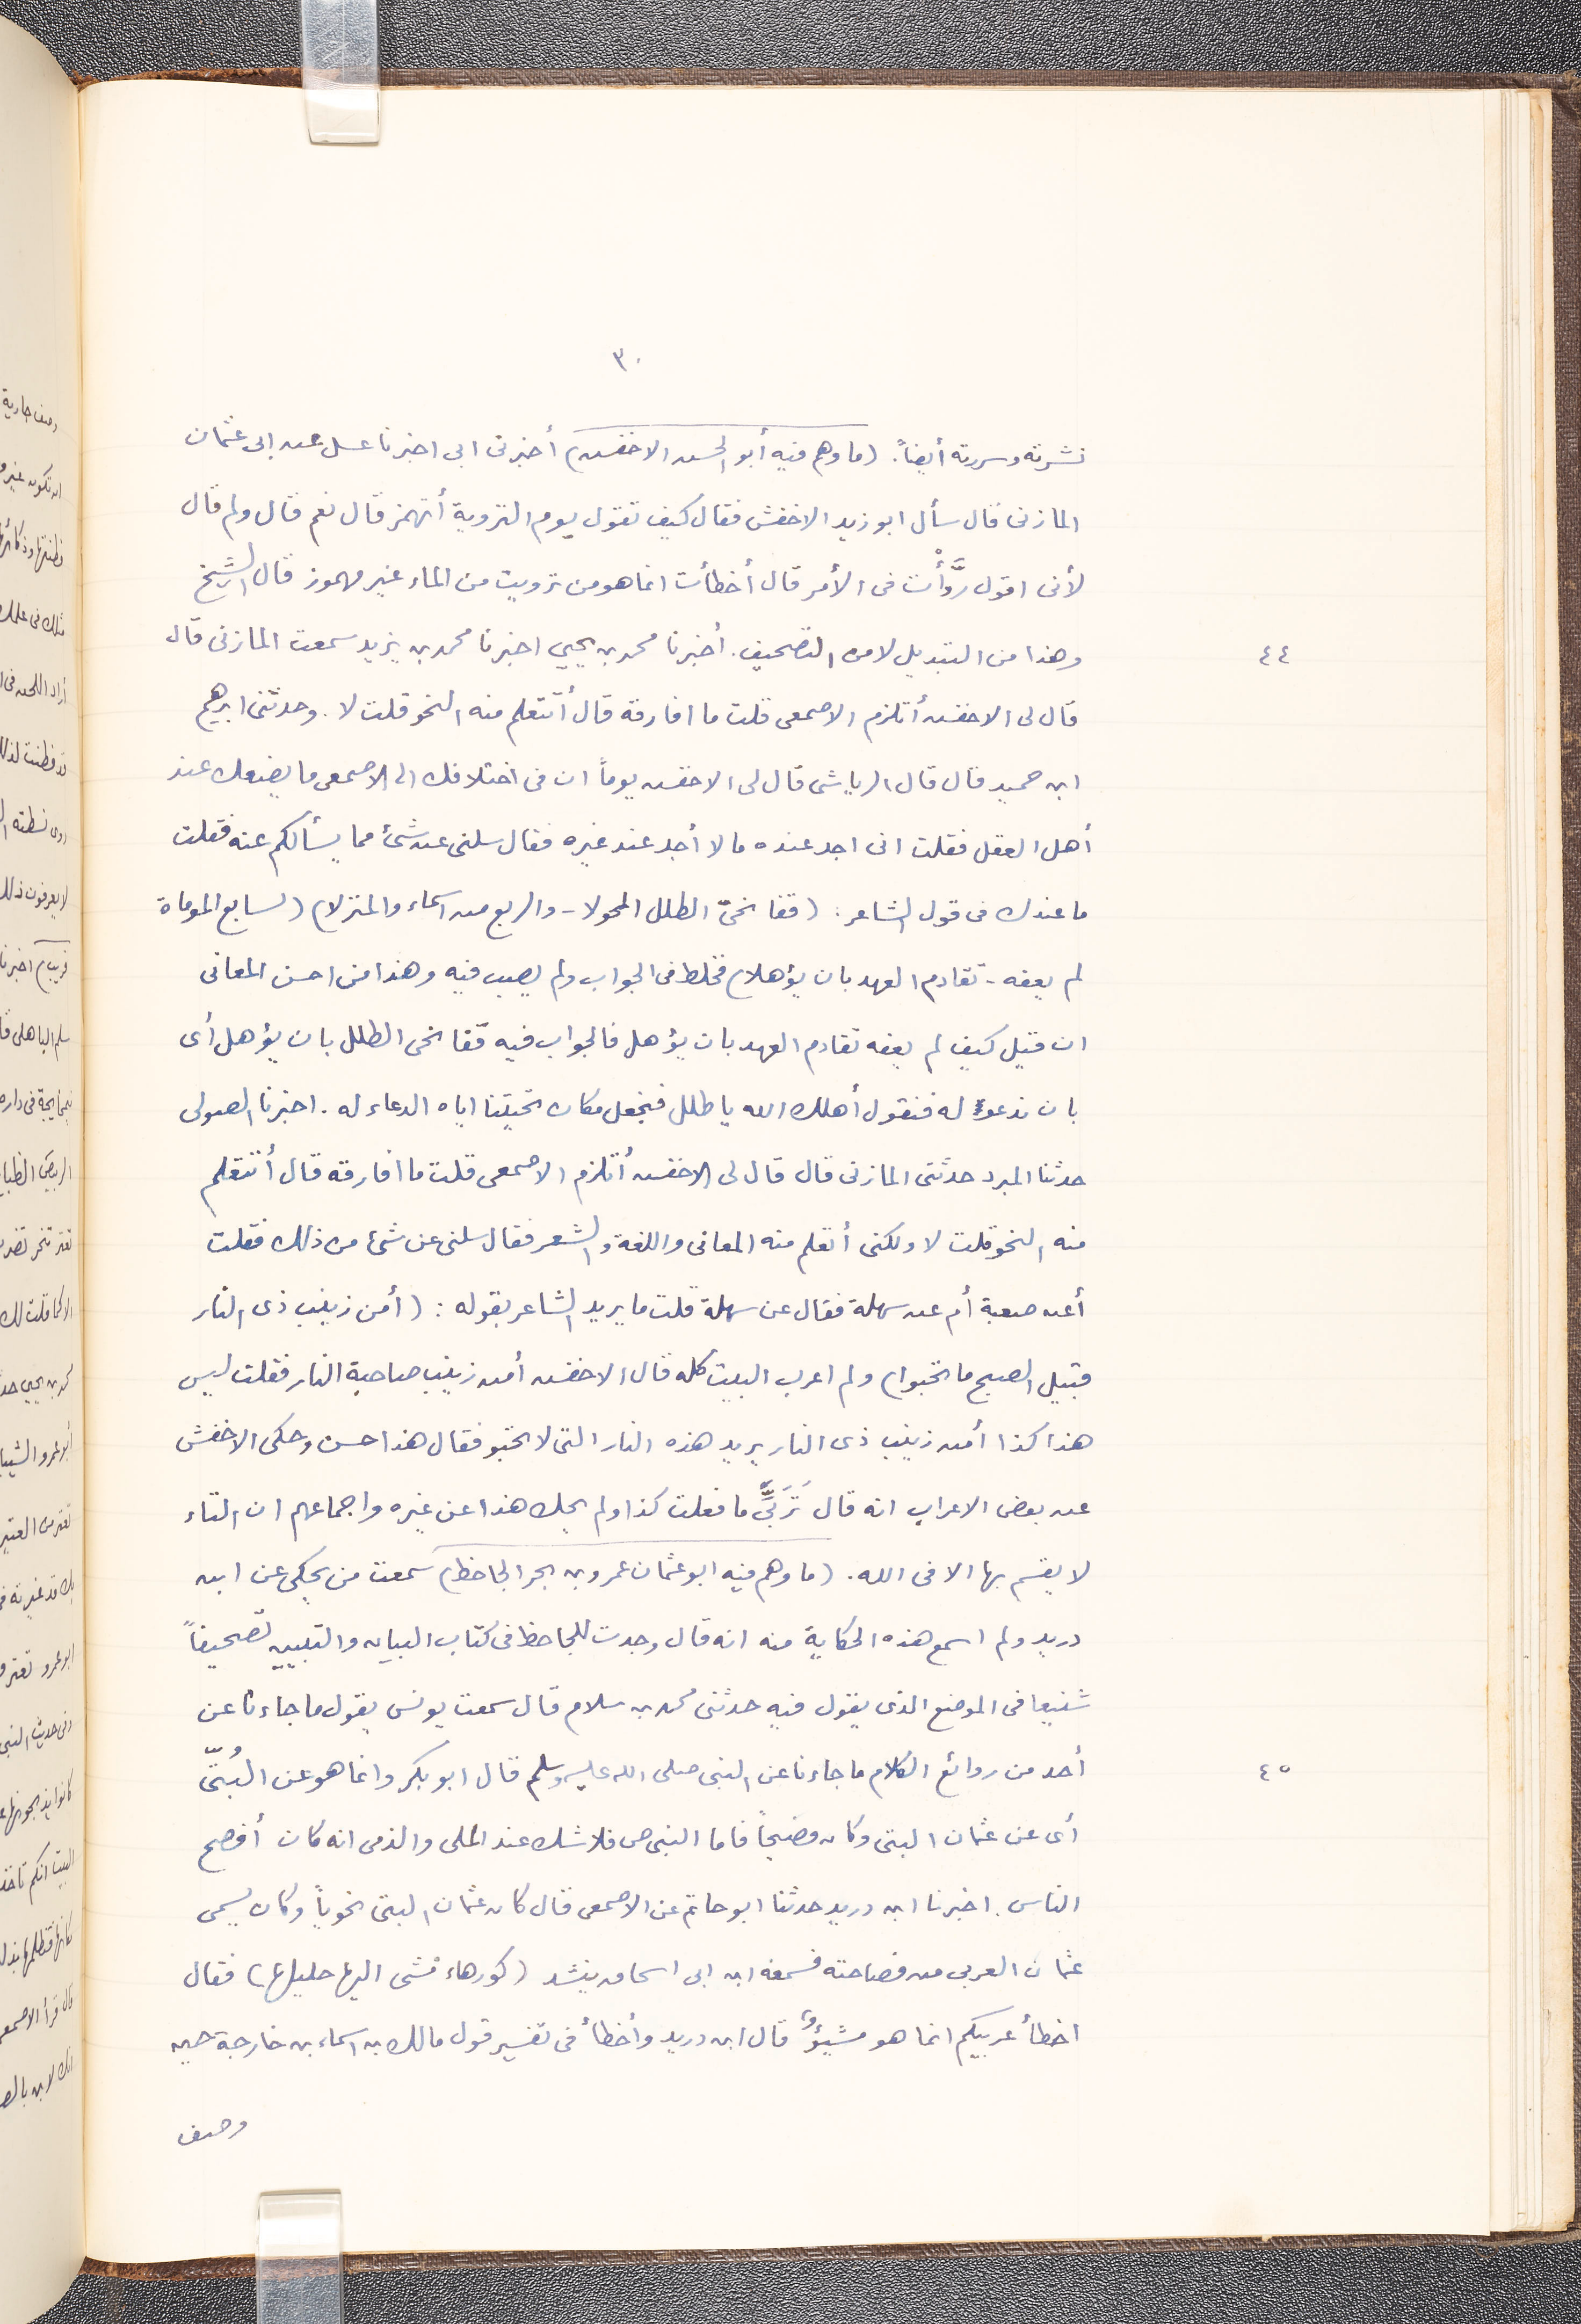 ٣٠
نشرته وسررته أيضاً. (ما وهم فيه أبو الحسن الاخفش) أخبرنى ابى اخبرنا عسل عن ابى عثمان
المازنى قال سأل ابو زيد الاخفش فقال كيف تقول يوم التروية أتهمز قال نعم قال ولم قال
لأنى اقول روَّأْت فى الأمر قال أخطأت انما هو من ترويت من الماء غير مهموز قال الشيخ
٤٤
وهذا من التبديل لا من التصحيف. أخبرنا محمد بن يحيى اخبرنا محمد بن يزيد سمعت المازنى قال
قال لى الاخفش أتلزم الاصمعى قلت ما افارقه قال أتتعلم منه النحو قلت لا. وحدثنى ابرهيم
ابن حميد قال قال الرياشى قال لى الاخفش يوماً ان فى اختلافك الى الاصمعى ما يضعك عند
أهل العقل فقلت انى اجد عنده ما لا أجد عند غيره فقال سلنى عن شئ مما يسألكم عنه فقلت
ما عندك فى قول الشاعر: (قفا نحىّ الطلل المحولا - والربع من اسماء والمنزلا) (لسابع الموماة
لم يعفه - تقادم العهد بان يؤهلا) فخلط فى الجواب ولم يصب فيه وهذا من احسن المعانى
ان قيل كيف لم يعفه تقادم العهد بان يؤهل فالجواب فيه قفا نحى الطلل بان يؤهل أى
بان ندعو له فنقول أهلك الله يا طلل فنجعل مكان تحيتنا اياه الدعاء له. اخبرنا الصولى
حدثنا المبرد حدثنى المازنى قال قال لى الاخفش أتلزم الاصمعى قلت ما افارقه قال أتتعلم
منه النحو قلت لا ولكنى أتعلم منه المعانى واللغة والشعر فقال سلنى عن شئ من ذلك فقلت
أعن صعبة أم عن سهلة فقال عن سهلة قلت ما يريد الشاعر بقوله: (أمن زينب ذى النار
قبيل الصبح ما تخبوا) ولم اعرب البيت كله قال الاخفش أمن زينب صاحبة النار فقلت ليس
هذا كذا أمن زينب ذى النار يريد هذه النار التى لا تخبو فقال هذا حسن وحكى الاخفش
عن بعض الاعراب انه قال تَرَبِّى ما فعلت كذا ولم يحك هذا عن غيره واجماعهم ان التاء
لا يقسم بها الا فى الله. (ما وهم فيه ابو عثمان عمرو بن بحر الجاحظ) سمعت من يحكى عن ابن
دريد ولم اسمع هذه الحكاية منه انه قال وجدت للجاحظ فى كتاب البيان والتبيين تصحيفاً
شنيعا فى الموضع الذى يقول فيه حدثنى محمد بن سلام قال سمعت يونس يقول ما جاءنا عن
٤٥
أحد من روائع الكلام ما جاءنا عن النبى صلى الله عليه وسلم قال ابو بكر وانما هو عن البُتّى
أى عن عثمان البتى وكان فصيحاً فاما النبى ص فلا شك عند الملى والذمى انه كان أفصح
الناس. اخبرنا ابن دريد حدثنا ابو حاتم عن الاصمعى قال كان عثمان البتى نحوياً وكان يسمى
عثمان العربى من فصاحته فسمعه ابن ابى اسحاق ينشد (كورهاء مشى اليها حليلها) فقال
اخطأ عربيكم انما هو مشيؤ قال ابن دريد وأخطأ فى تفسير قول مالك بن اسماء بن خارجة حين
وصف